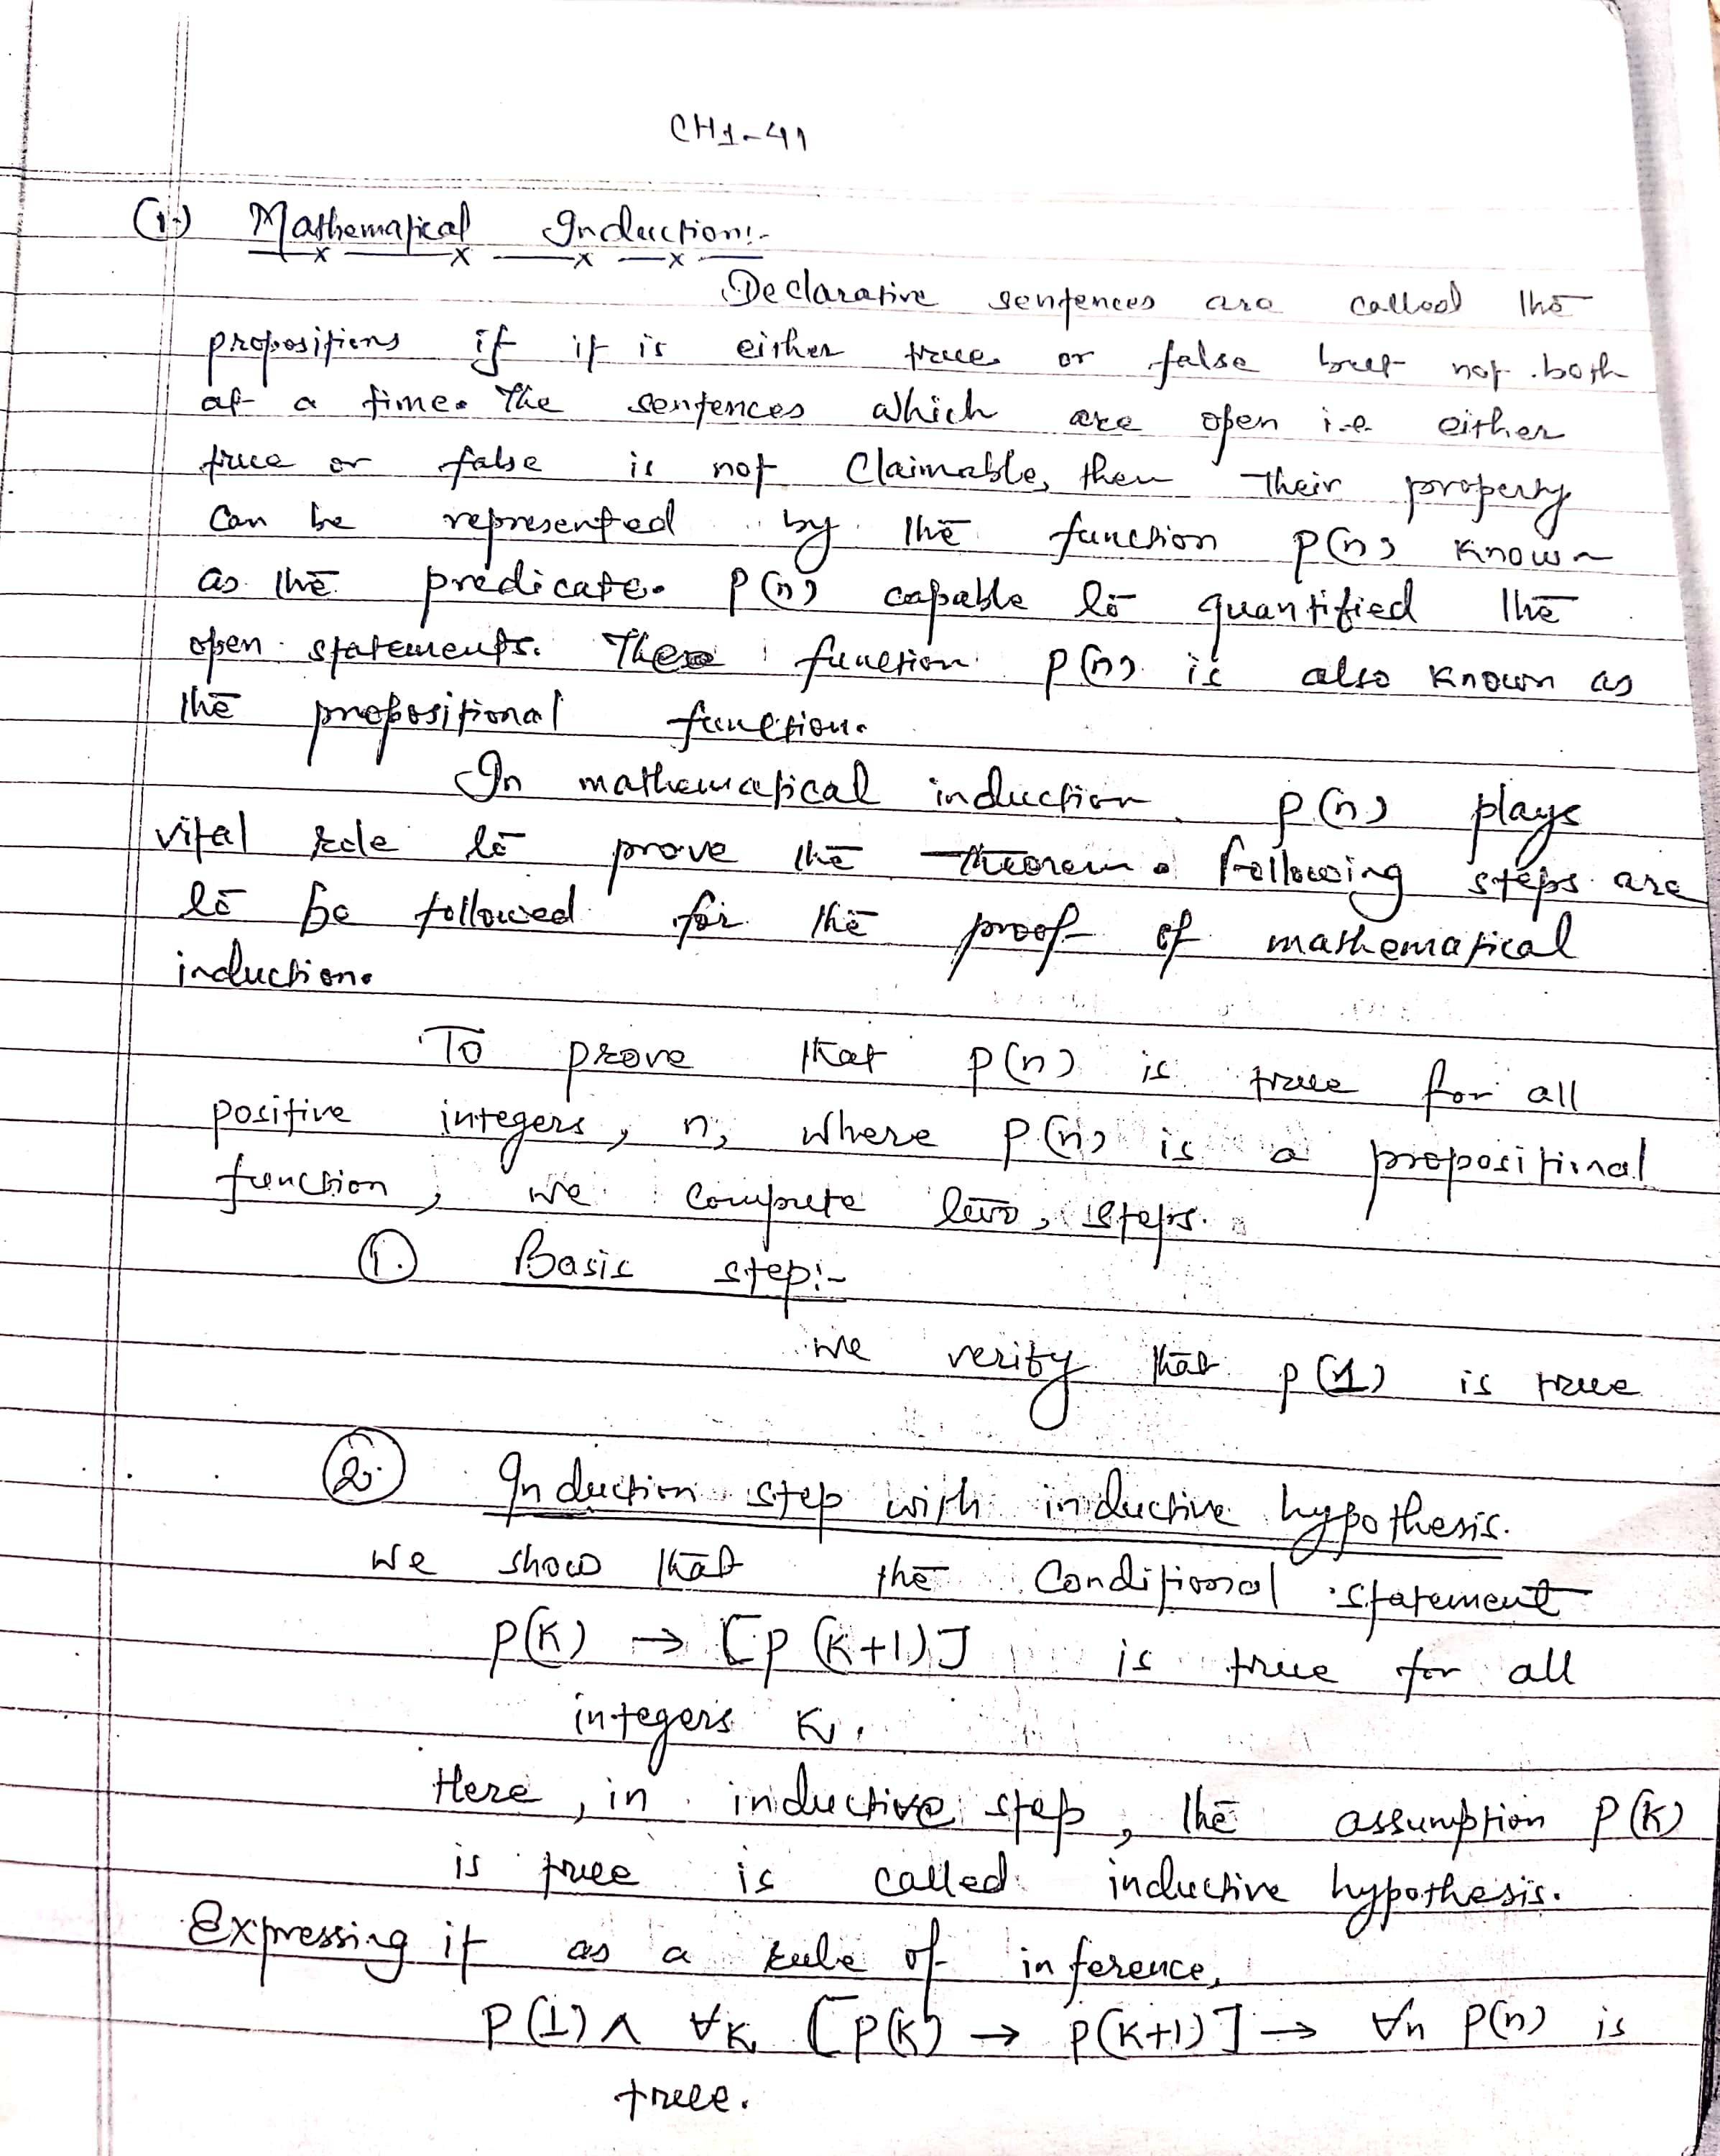 CH1-41
(i) Mathematical Induction:-
Declarative sentences are called the
propositions if it is either true or false but not both
at a time. The sentences which are open i.e either
true or false is not Claimable, then their property
can be represented by the function P(n) known
as the predicate. P(n) capable to quantified the
open statements. These function P(n) is also known as
the propositional function.
In mathematical induction P(n) plays
vital role to prove the theorem. following steps are
to be followed for the proof of mathematical
induction.
To prove that P(n) is true for all
positive integers, n, where P(n) is a propositional
function, we compute two steps.
1. Basis step:-
we verify that P(1) is true
2. Induction step with inductive hypothesis.
we show that the Conditional statement
P(K) → [P(K+1)] is true for all
integers K.
Here, in inductive step, the assumption P(K)
is true is called inductive hypothesis.
Expressing it as a rule of inference,
P(1) ∧ ∀K [P(K) → P(K+1)] → ∀n P(n) is
true.